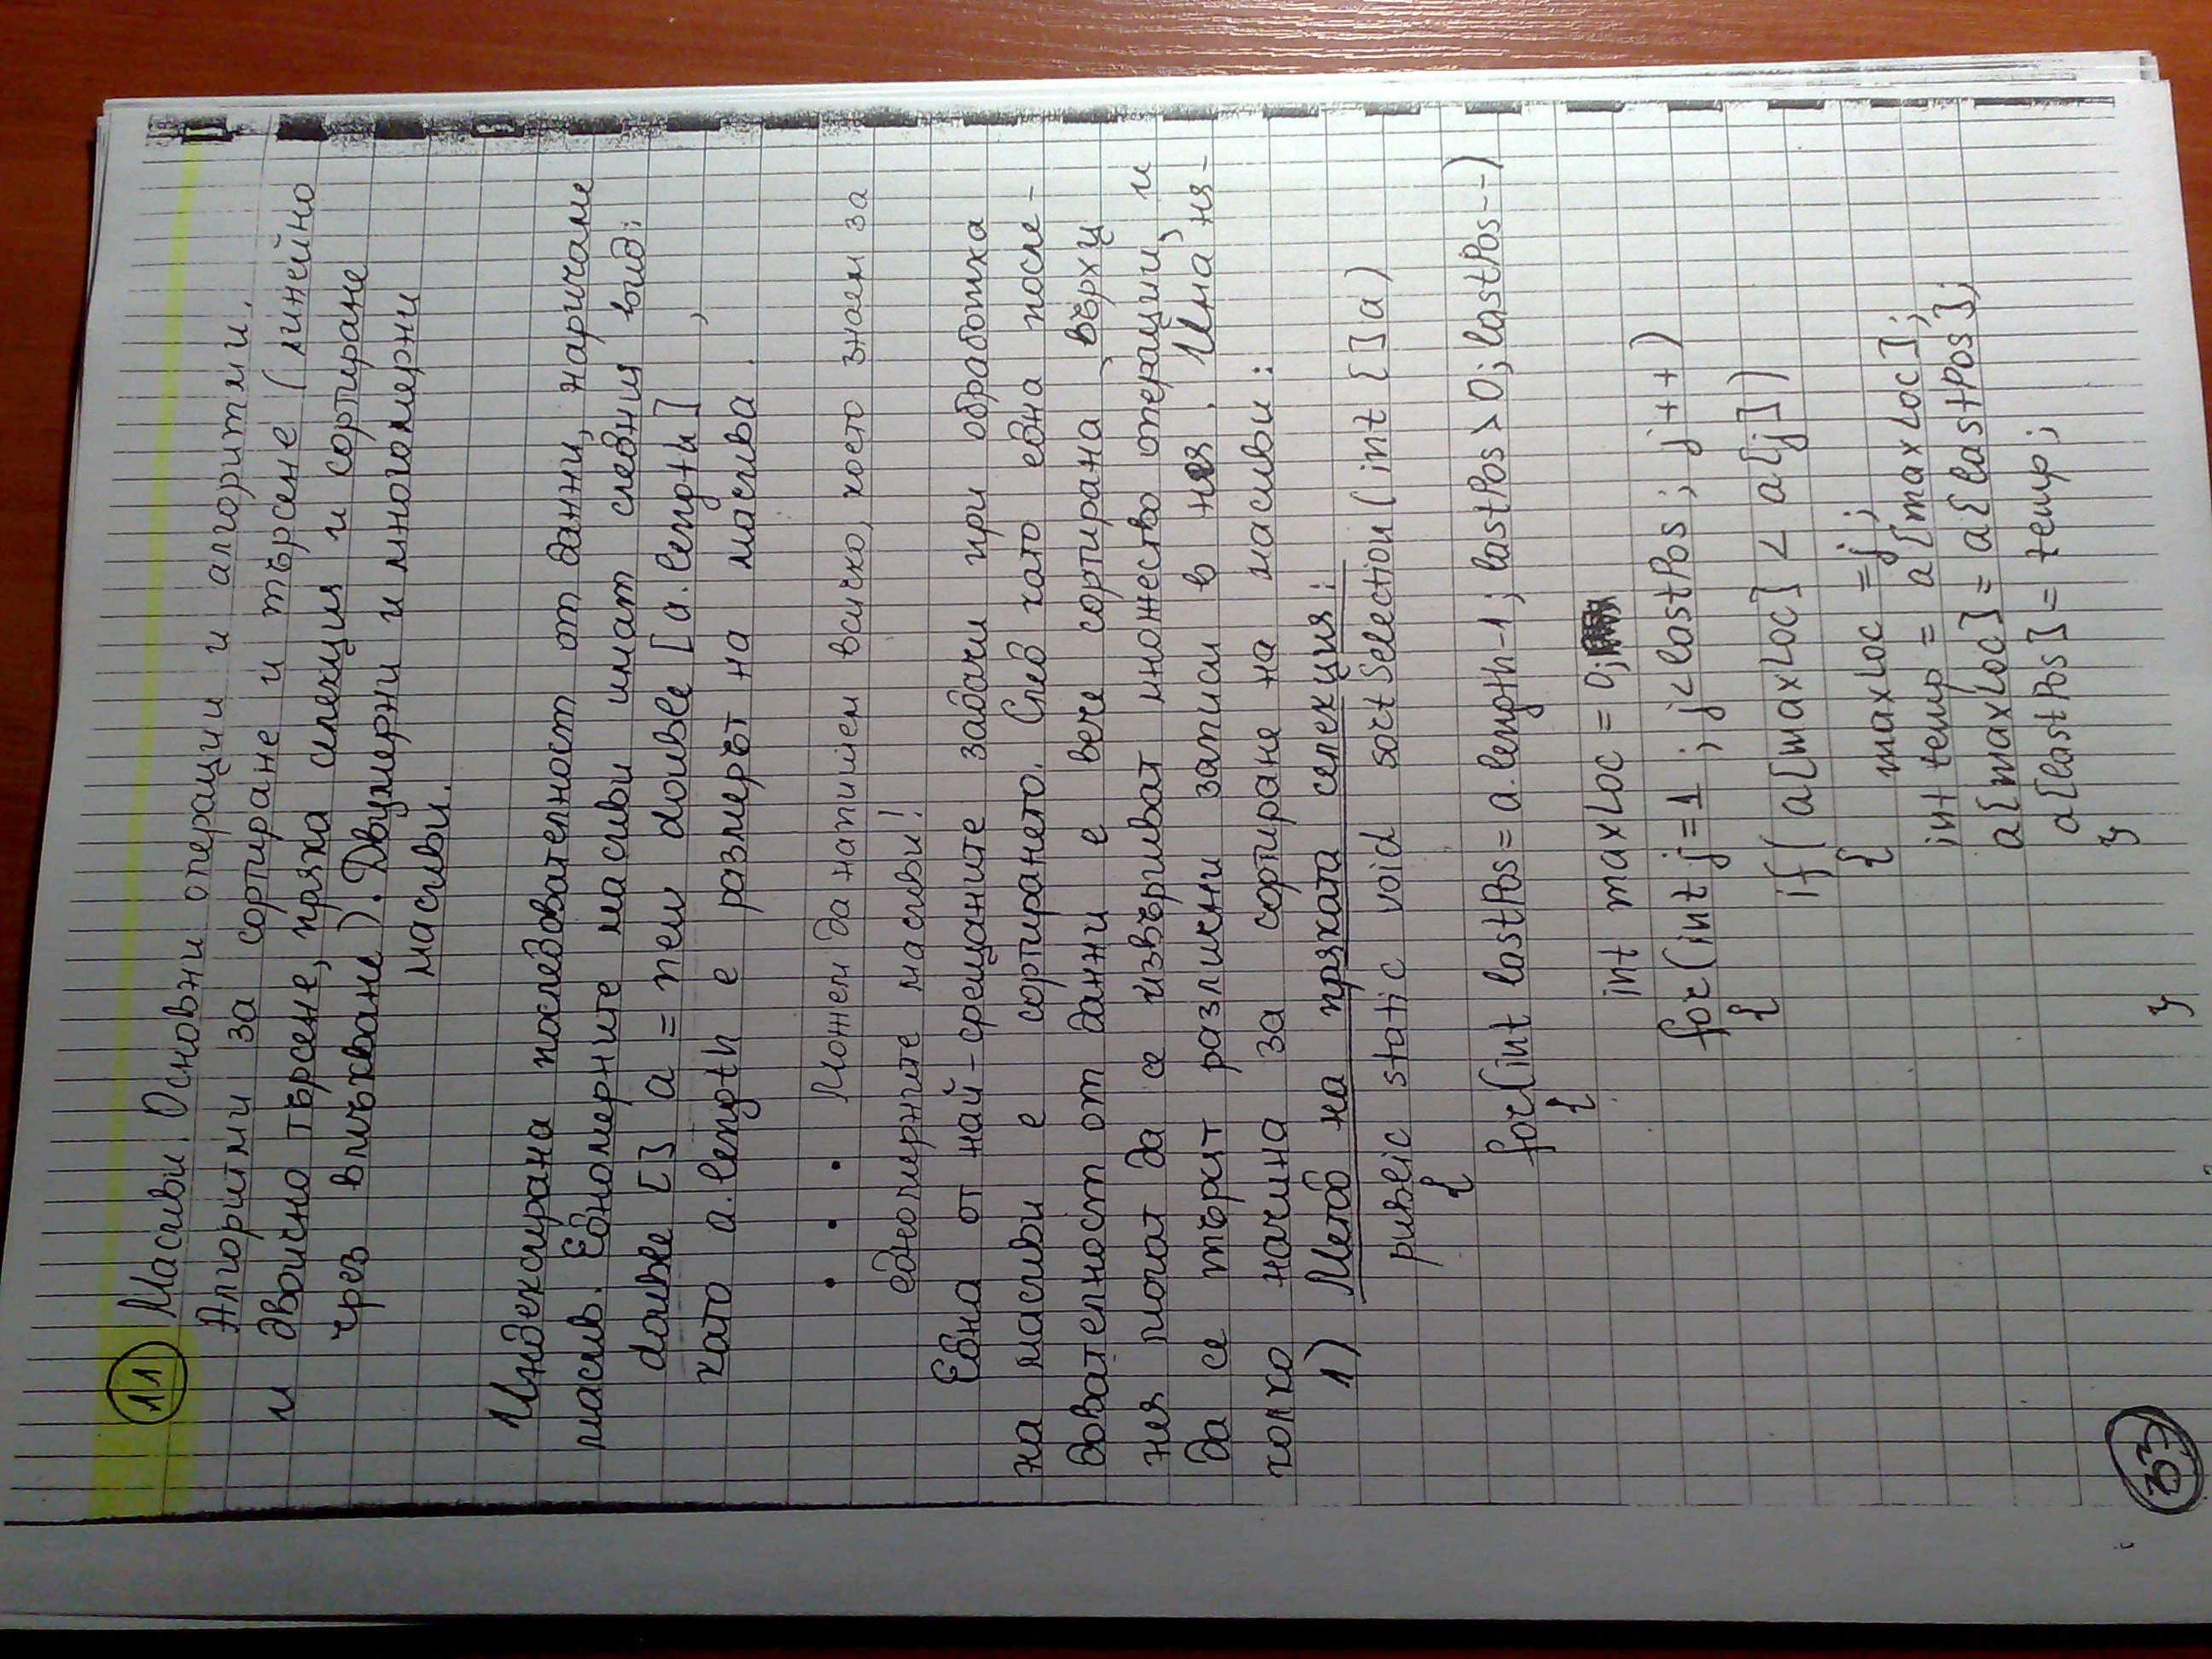 11 Масиви. Основни операции и алгоритми.
Алгоритми за сортиране и търсене (линейно
и двоично търсене, пряка селекция и сортиране
чрез вмъкване). Двумерни и многомерни
масиви.
Индексирана последователност от данни, наричаме
масив. Едномерните масиви имат следния вид:
double [] a = new double [a.length] ,
като a.length е размерът на масива.
. . . Можем да напишем всичко, което знаем за
едномерните масиви!
Една от най-срещаните задачи при обработка
на масиви е сортирането. След като една после-
дователност от данни е вече сортирана, върху
нея могат да се извършват множество операции, и
да се търсят различни записи в нея. Има ня-
колко начина за сортиране на масиви:
1) Метод на пряката селекция:
public static void sortSelection(int []a)
{
for(int lastPos = a.length-1; lastPos > 0; lastPos--)
{
int maxLoc = 0;
for(int j=1; j<lastPos; j++)
{
if( a[maxLoc] < a[j])
{ maxLoc = j;
int temp = a[maxLoc];
a[maxLoc] = a[lastPos];
a[lastPos] = temp;
}
}
33